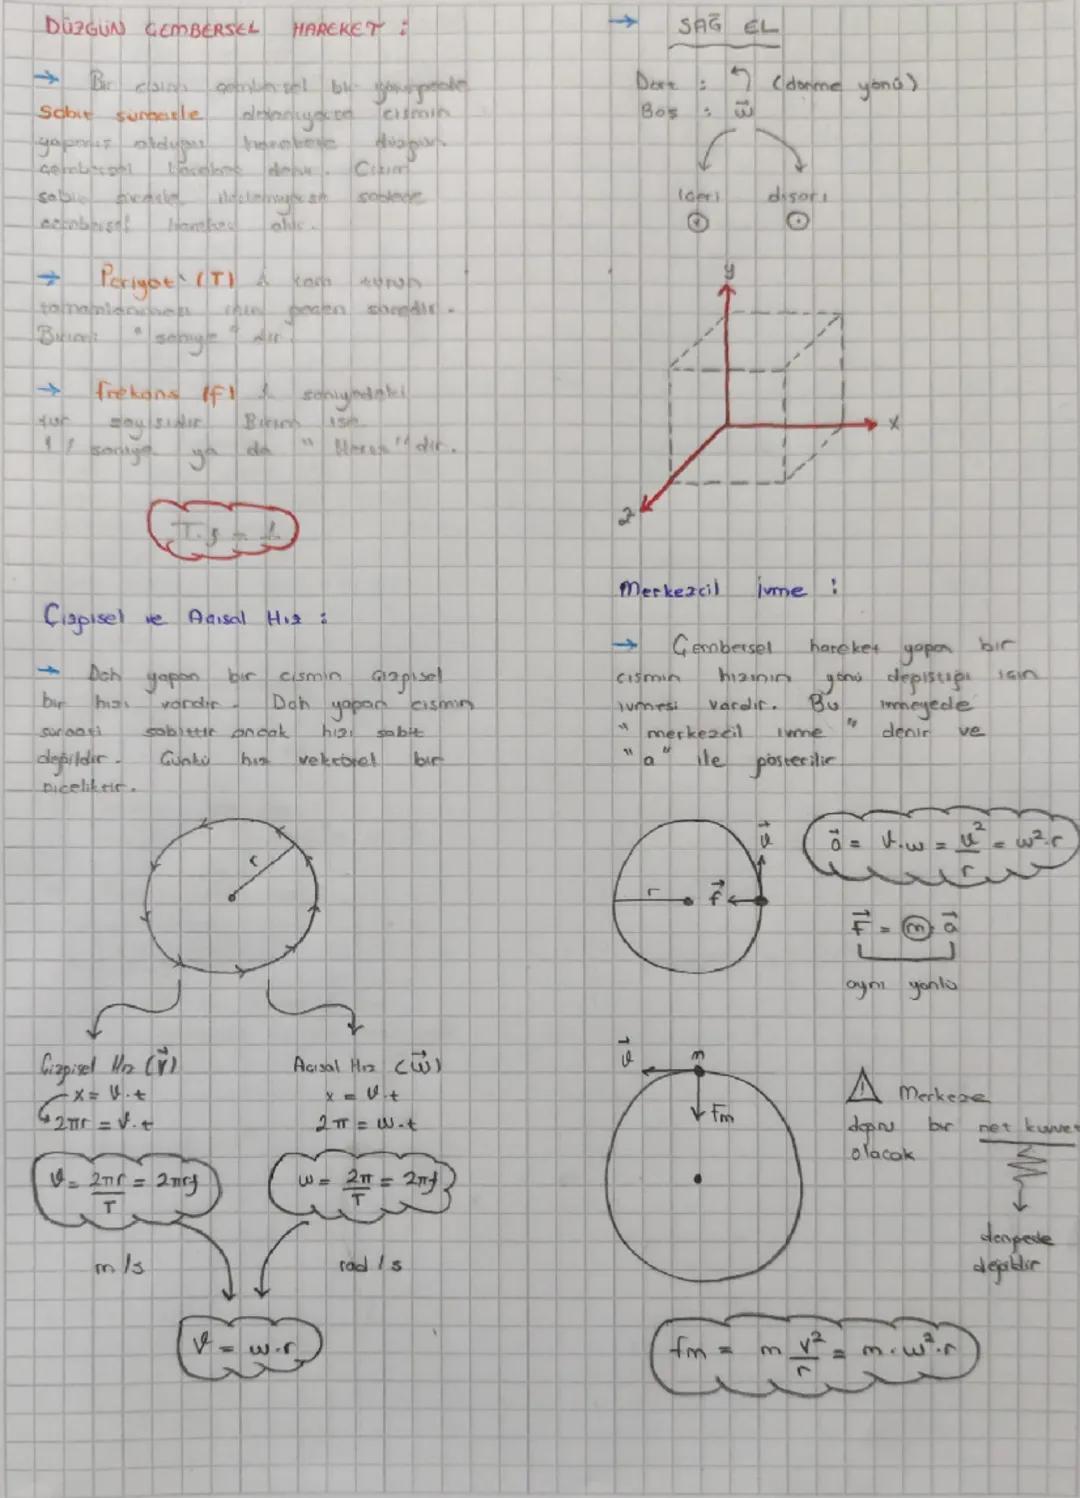 DÜZGÜN ÇEMBERSEL HAREKET :
→ Bir cisim çembersel bir yörüngede
Sabit süratle dolanıyorsa cismin
yapmış olduğu harekete düzgün
çembersel hareket denir. Cisim
sabit süratle
çembersel hareket
→ Periyot (T) 1 tam turun
tamamlanması için geçen süredir.
Birimi "saniye" dir.
→ frekans (f) 1 saniyedeki
tur sayısıdır Birim ise
1/saniye ya da "Hertz" dir.
T.f = 1
Çizgisel ve Açısal Hız :
→ Dçh yapan bir cismin çizgisel
bir hızı vardır. Dçh yapan cismin
sürati sabittir ancak hızı sabit
değildir. Çünkü hız vektörel bir
niceliktir.
r
Çizgisel Hız (v⃗)
x = v.t
2πr = v.t
v = 2πr/T = 2πrf
m/s
Açısal Hız (w⃗)
x = v.t
2π = w.t
w = 2π/T = 2πf
rad/s
v = w.r
→ SAĞ EL
Dört : ↰ (dönme yönü)
Baş : w⃗
içeri
⊗
dışarı
⊙
y
x
z
Merkezcil İvme :
→ Çembersel hareket yapan bir
cismin hızının yönü değiştiği için
ivmesi vardır. Bu ivmeyede
"merkezcil ivme" denir ve
"a" ile gösterilir
r f⃗ v⃗
a⃗ = v.w = v²/r = w².r
F⃗ = m.a⃗
aynı yönlü
v⃗ m
Fm
⚠ Merkeze
doğru bir net kuvvet
olacak
dengede
değildir
fm = m v²/r = m.w².r